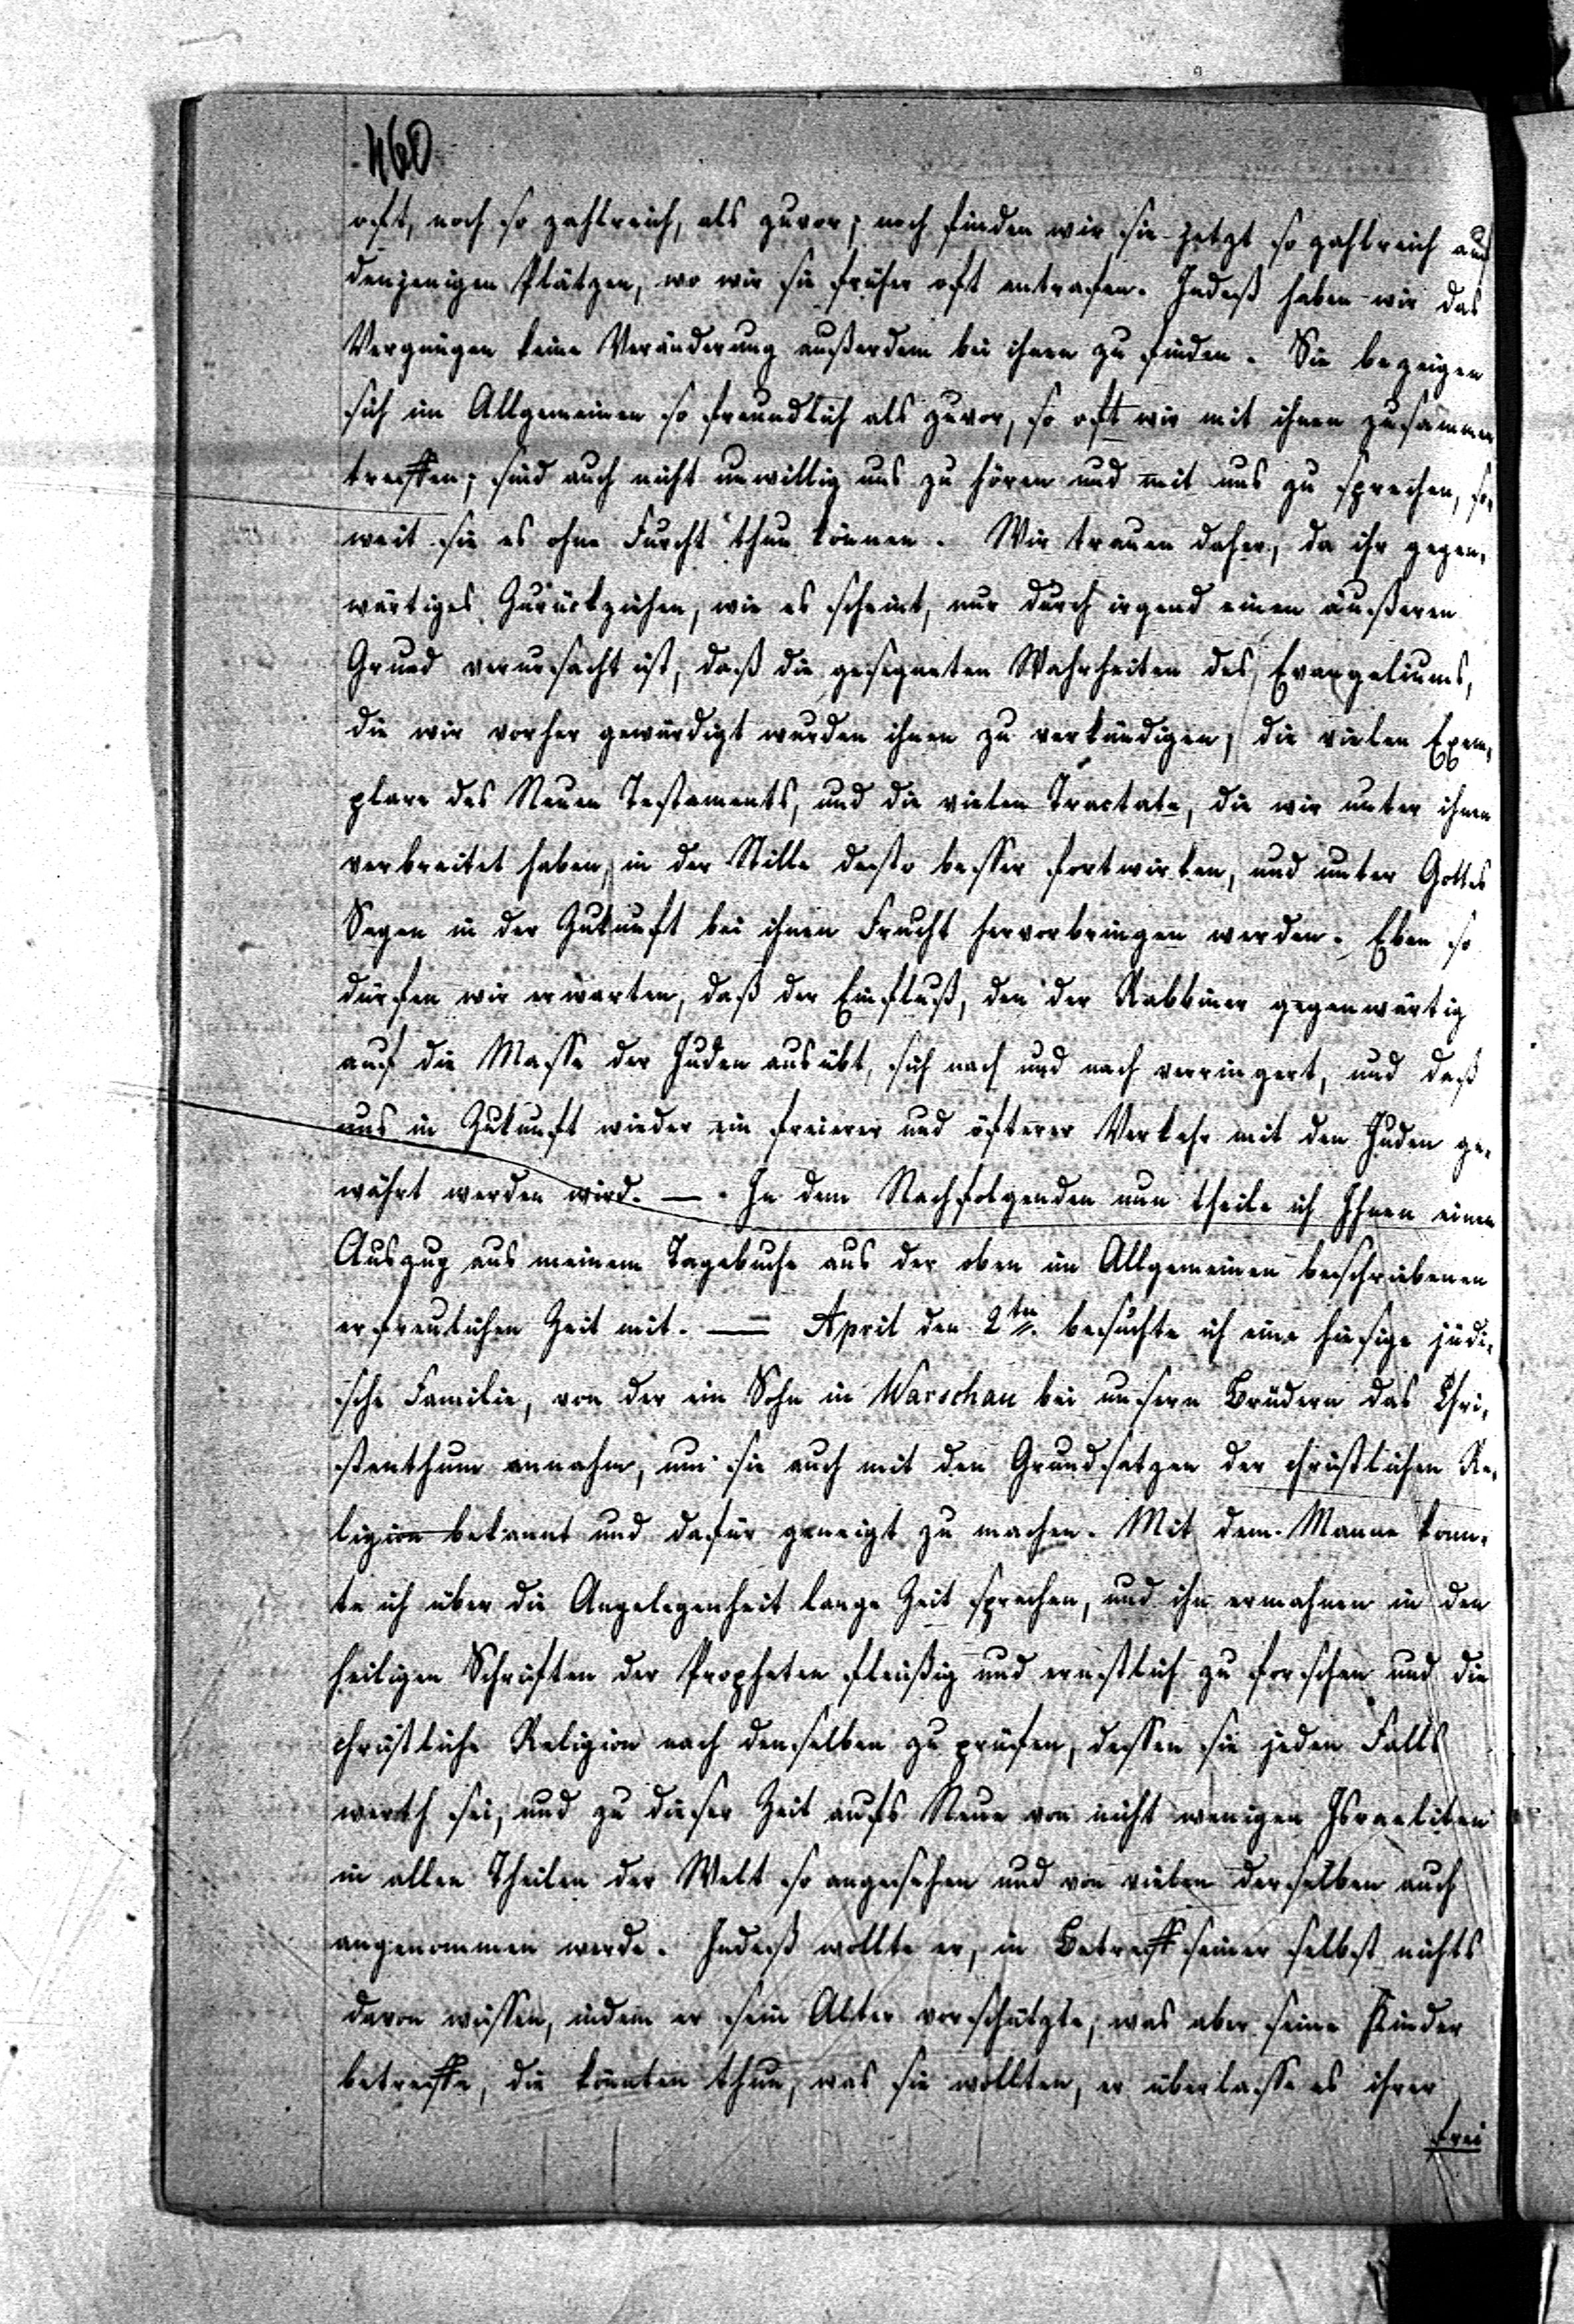 460
oft, noch so zahlreich, als zuvor; noch finden wir sie jetzt so zahlreich auf
denjenigen Plätzen, wo wir sie früher oft antrafen. Indeß haben wir das
Vergnügen keine Veränderung außerdem bei ihnen zu finden. Sie bezeigen
sich im Allgemeinen so freundlich als zuvor, so oft wir mit ihnen zusammen
treffen; sind auch nicht unwillig uns zu hören und mit uns zu sprechen, so-
weit sie es ohne Furcht thun können. Wir trauen daher, da ihr gegen-
wärtiges Zurückziehen, wie es scheint, nur durch irgend einen äußeren
Grund verursacht ist, daß die gesegneten Wahrheiten des Evangeliums,
die wir vorher gewürdigt wurden ihnen zu verkündigen, die vielen Exem-
plare des Neuen Testaments, und die vielen Tractate, die wir unter ihnen
verbreitet haben, in der Stille desto besser fortwirken, und unter Gottes
Segen in der Zukunft bei ihnen Frucht hervorbringen werden. Eben so
dürfen wir erwarten, daß der Einfluß, den der Rabbiner gegenwärtig
auf die Masse der Juden ausübt, sich nach und nach verringert, und daß
uns in Zukunft wieder ein freierer und öfterer Verkehr mit den Juden ge-
währt werden wird. — . In dem Nachfolgenden nun theile ich Ihnen einen
Auszug aus meinem Tagebuche aus der oben im Allgemeinen beschriebenen
erfreulichen Zeit mit. — April den 2ten. besuchte ich eine hiesige jüdi-
sche Familie, von der ein Sohn in Warschau bei unsern Brüdern das Chri-
stenthum annahm, um sie auch mit den Grundsatzen der christlichen Re-
ligion bekannt und dafür geneigt zu machen. Mit dem Manne konn-
te ich über die Angelegenheit lange Zeit sprechen, und ihn ermahnen in den
heiligen Schriften der Propheten fleißig und ernstlich zu forschen und die
christliche Religion nach denselben zu prüfen, dessen sie jeden Falls
werth sei, und zu dieser Zeit aufs Neue von nicht wenigen Israeliten
in allen Theilen der Welt so angesehen und von vielen derselben auch
angenommen werde. Indeß wollte er, in Betreff seiner selbst nichts
davon wissen, indem er sein Alter vorschützte, was aber seine Kinder
betreffe, die könnten thun, was sie wollten, er überlasse es ihrer
frei